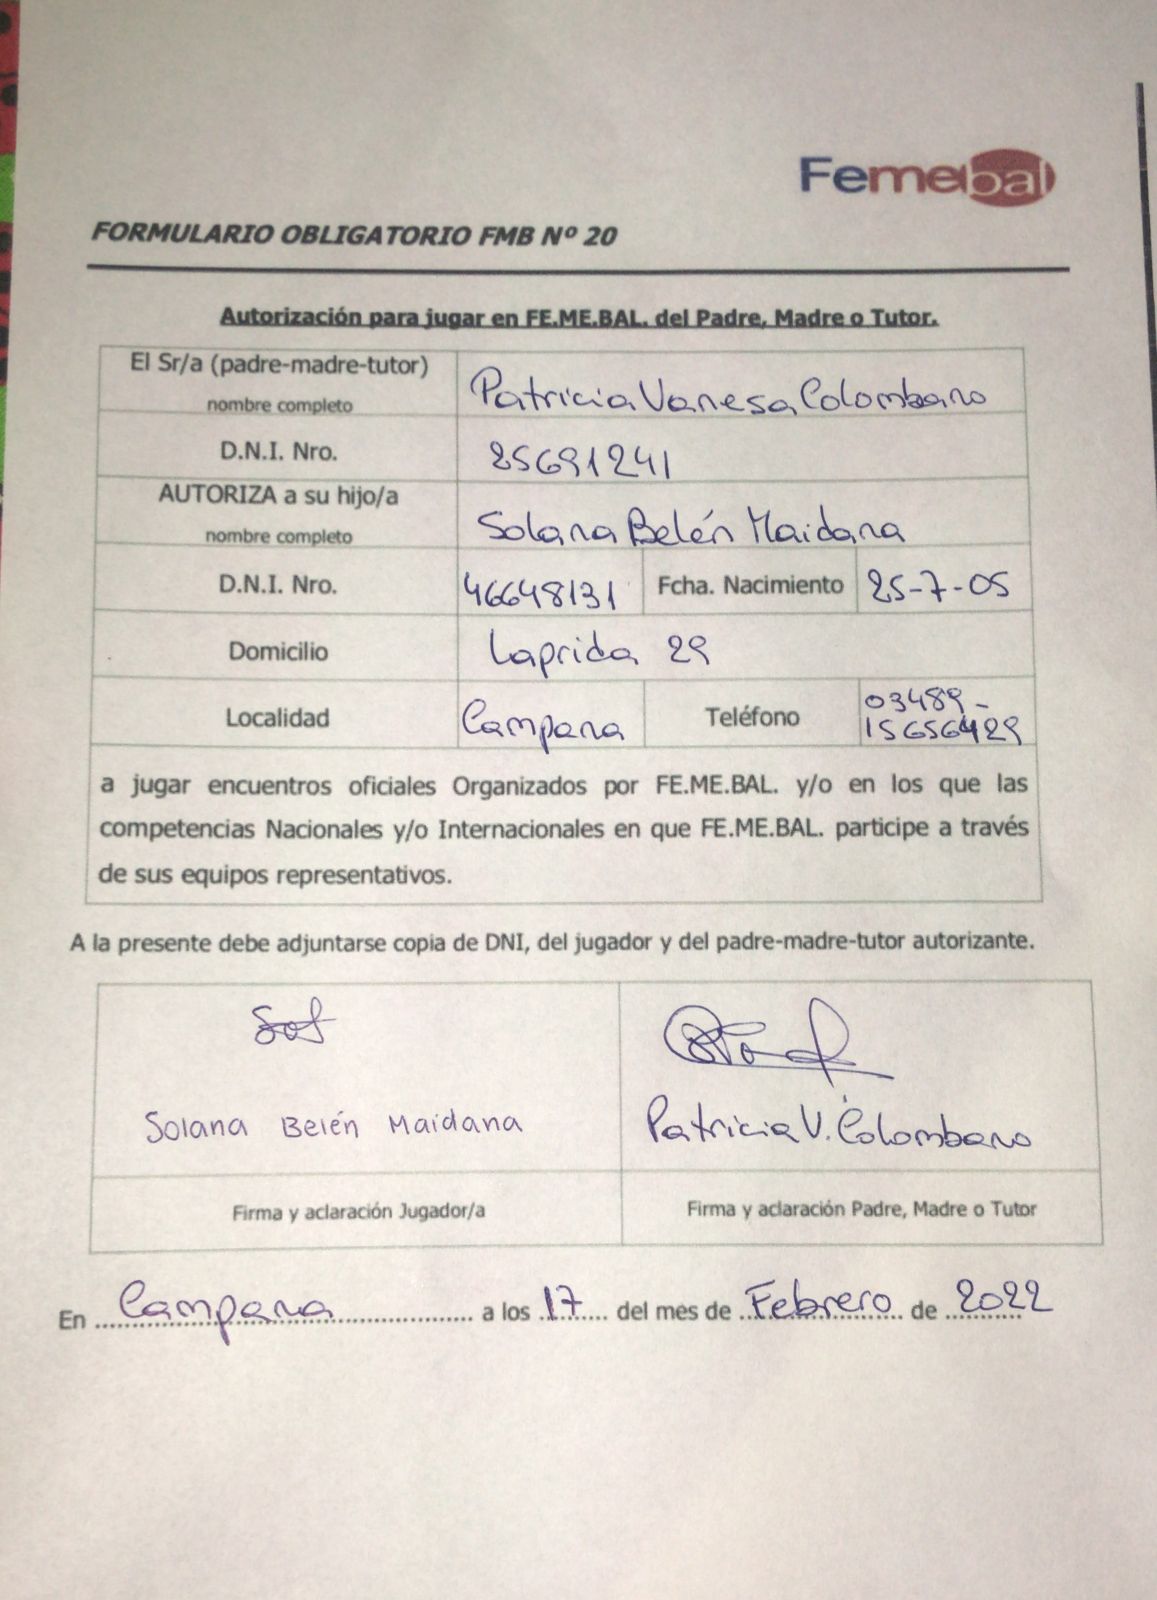 Femebal
FORMULARIO OBLIGATORIO FMB Nº 20
Autorización para jugar en FE.ME.BAL. del Padre, Madre o Tutor.
El Sr/a (padre-madre-tutor) nombre completo Patricia Vanesa Colombano
D.N.I. Nro. 25691241
AUTORIZA a su hijo/a nombre completo Solana Belén Maidana
D.N.I. Nro. 46648131 Fcha. Nacimiento 25-7-05
Domicilio Laprida 29
Localidad Campana Teléfono 03489-
15656429
a jugar encuentros oficiales Organizados por FE.ME.BAL. y/o en los que las
competencias Nacionales y/o Internacionales en que FE.ME.BAL. participe a través
de sus equipos representativos.
A la presente debe adjuntarse copia de DNI, del jugador y del padre-madre-tutor autorizante.
Solana Belén Maidana Patricia V. Colombano
Firma y aclaración Jugador/a Firma y aclaración Padre, Madre o Tutor
En Campana a los 17 del mes de Febrero de 2022